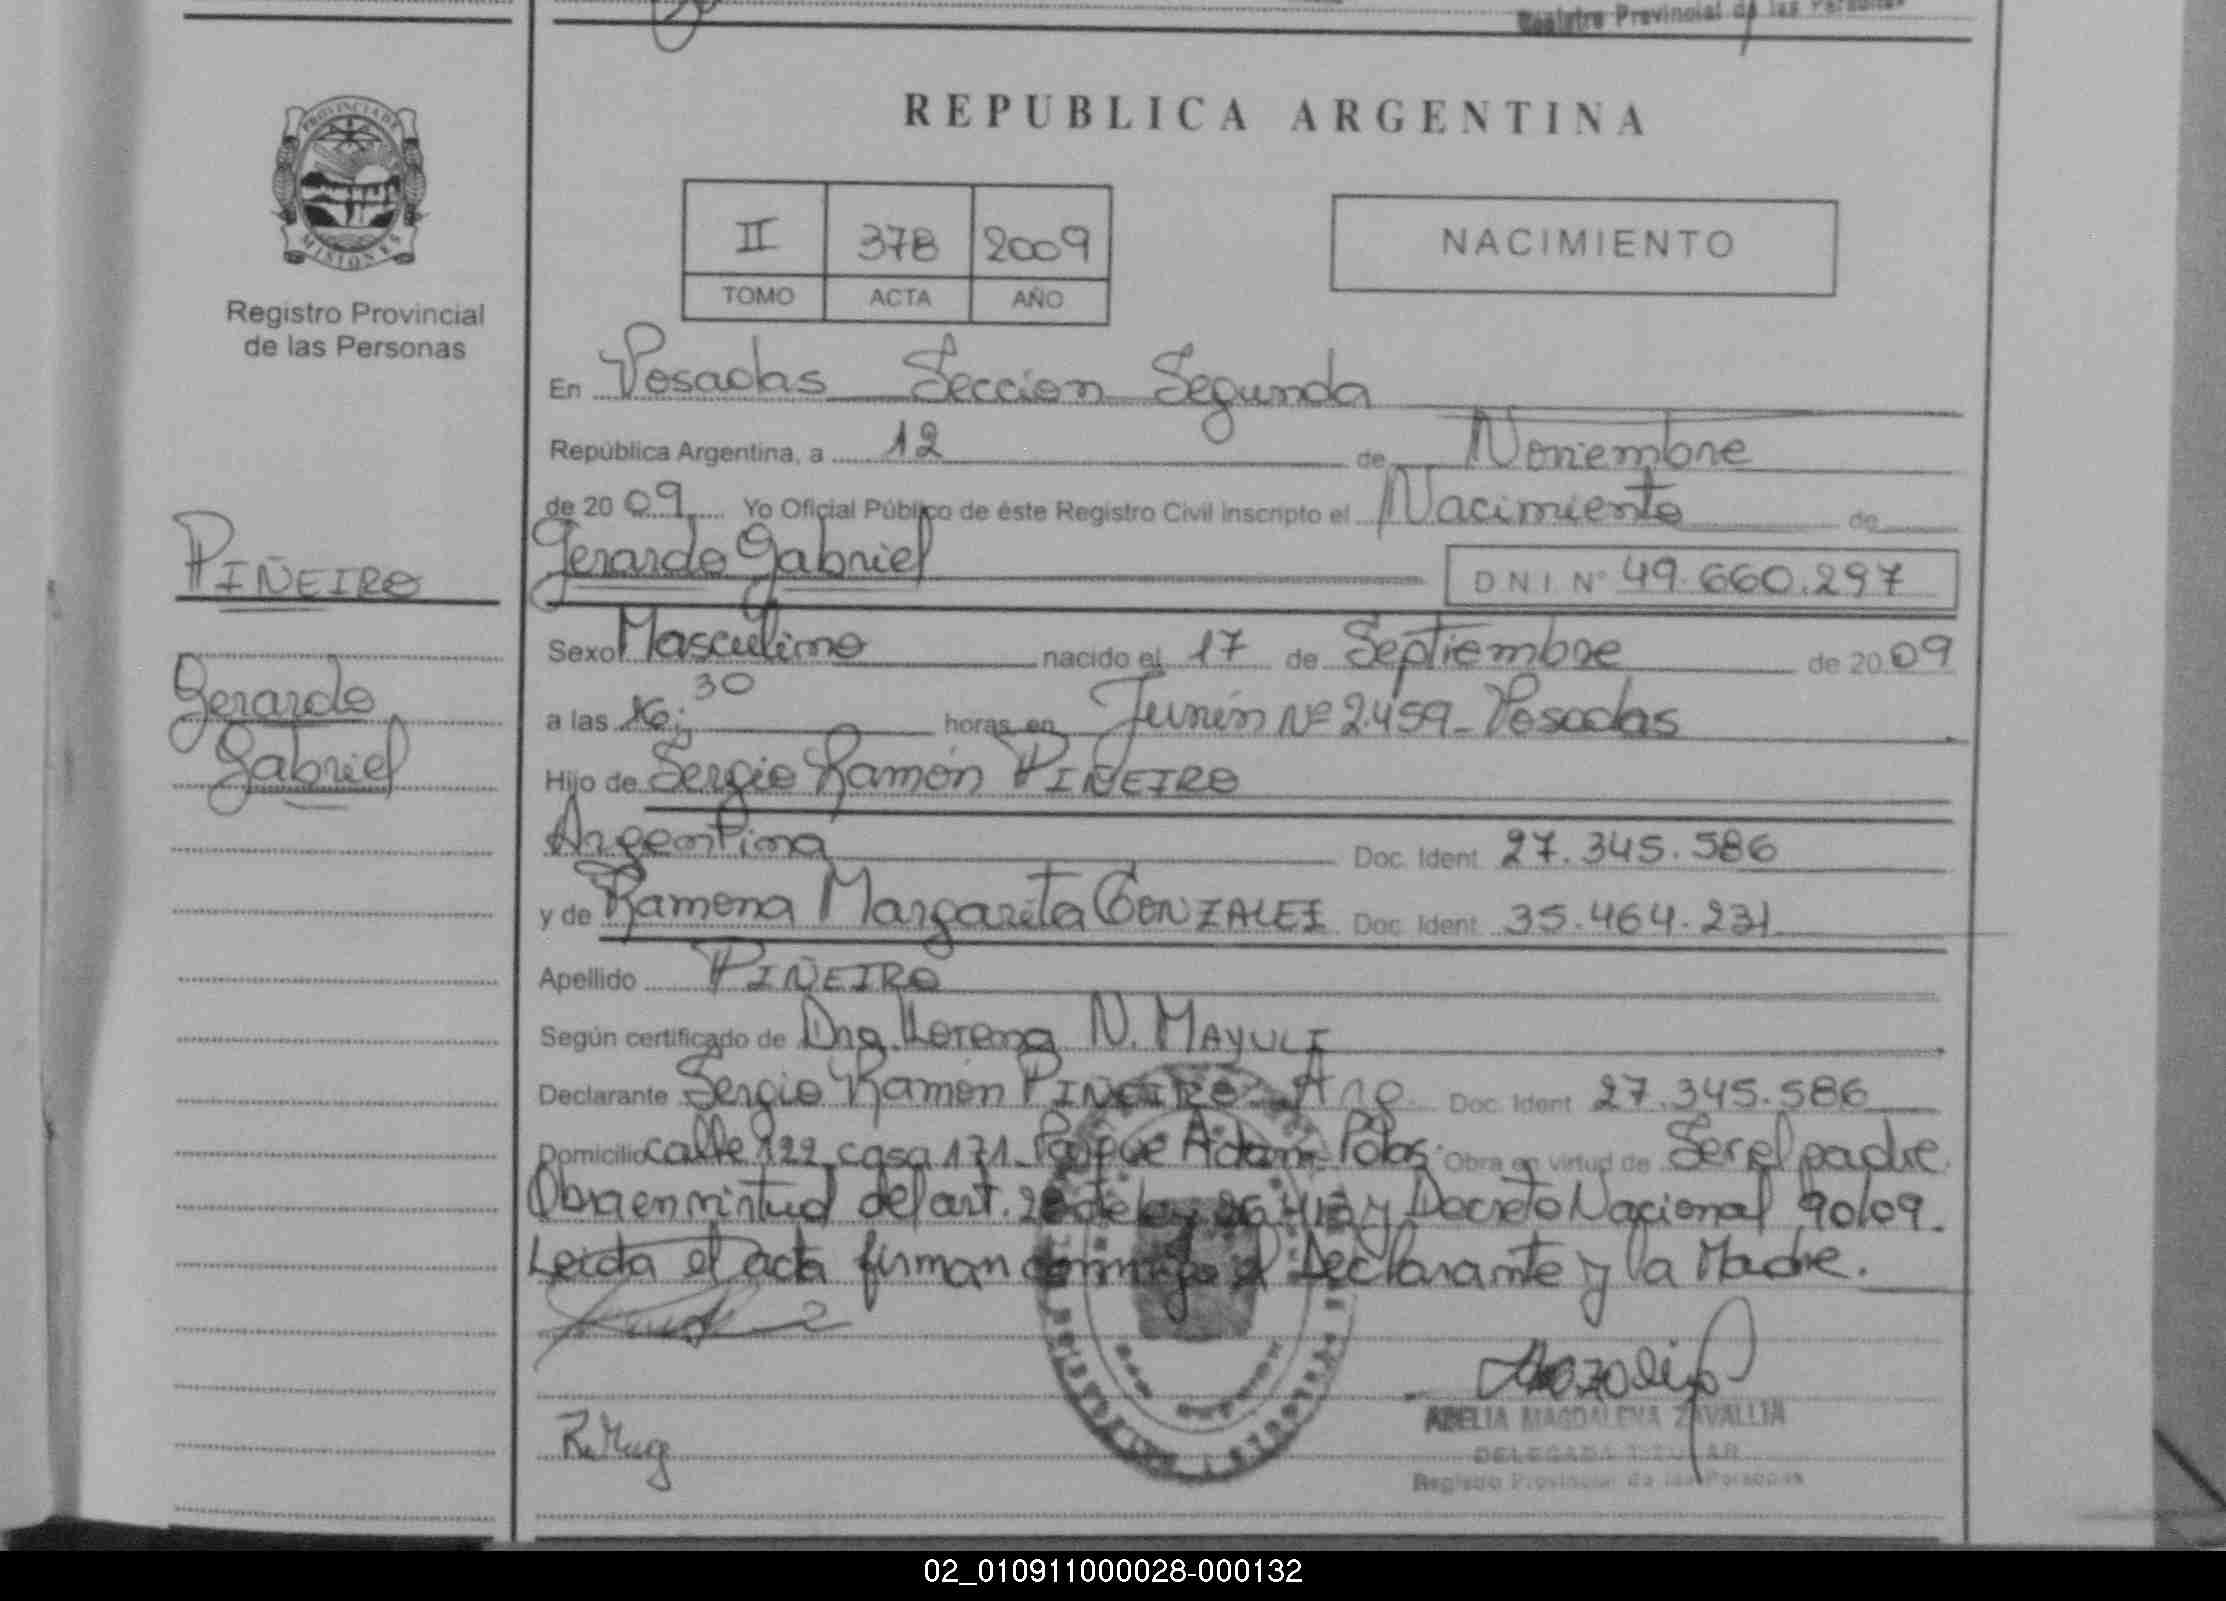 Registro Provincial de las Personas
PROVINCIA DE
MISIONES
Registro Provincial
de las Personas
REPUBLICA ARGENTINA
II 378 2009
TOMO ACTA AÑO
NACIMIENTO
En Posadas Seccion Segunda
República Argentina, a 12 de Noviembre
de 2009 Yo Oficial Público de éste Registro Civil inscripto el Nacimiento de
PIÑEIRO
Gerardo Gabriel
D N I Nº 49.660.297
Sexo Masculino nacido el 17 de Septiembre de 2009
Gerardo
Gabriel
a las 16:30 horas en Junín Nº 2459 - Posadas
Hijo de Sergio Ramón PIÑEIRO
Argentina Doc. Ident 27.345.586
y de Ramona Margarita GONZALEZ Doc. Ident 35.464.231
Apellido PIÑEIRO
Según certificado de Dra. Lorena N. MAYULI
Declarante Sergio Ramón PIÑEIRO - Arg. Doc. Ident 27.345.586
Domicilio calle 122 casa 171 - Parque Adam Polos Obra en virtud de Ser el padre.
Obra en virtud del art. 28 de ley 26.413 y Decreto Nacional 90/09.
Leida el acta firman conmigo el Declarante y la Madre.
R. Marg
ABELIA MAGDALENA ZAVALLIA
DELEGADA TITULAR
Registro Provincial de las Personas
02_010911000028-000132